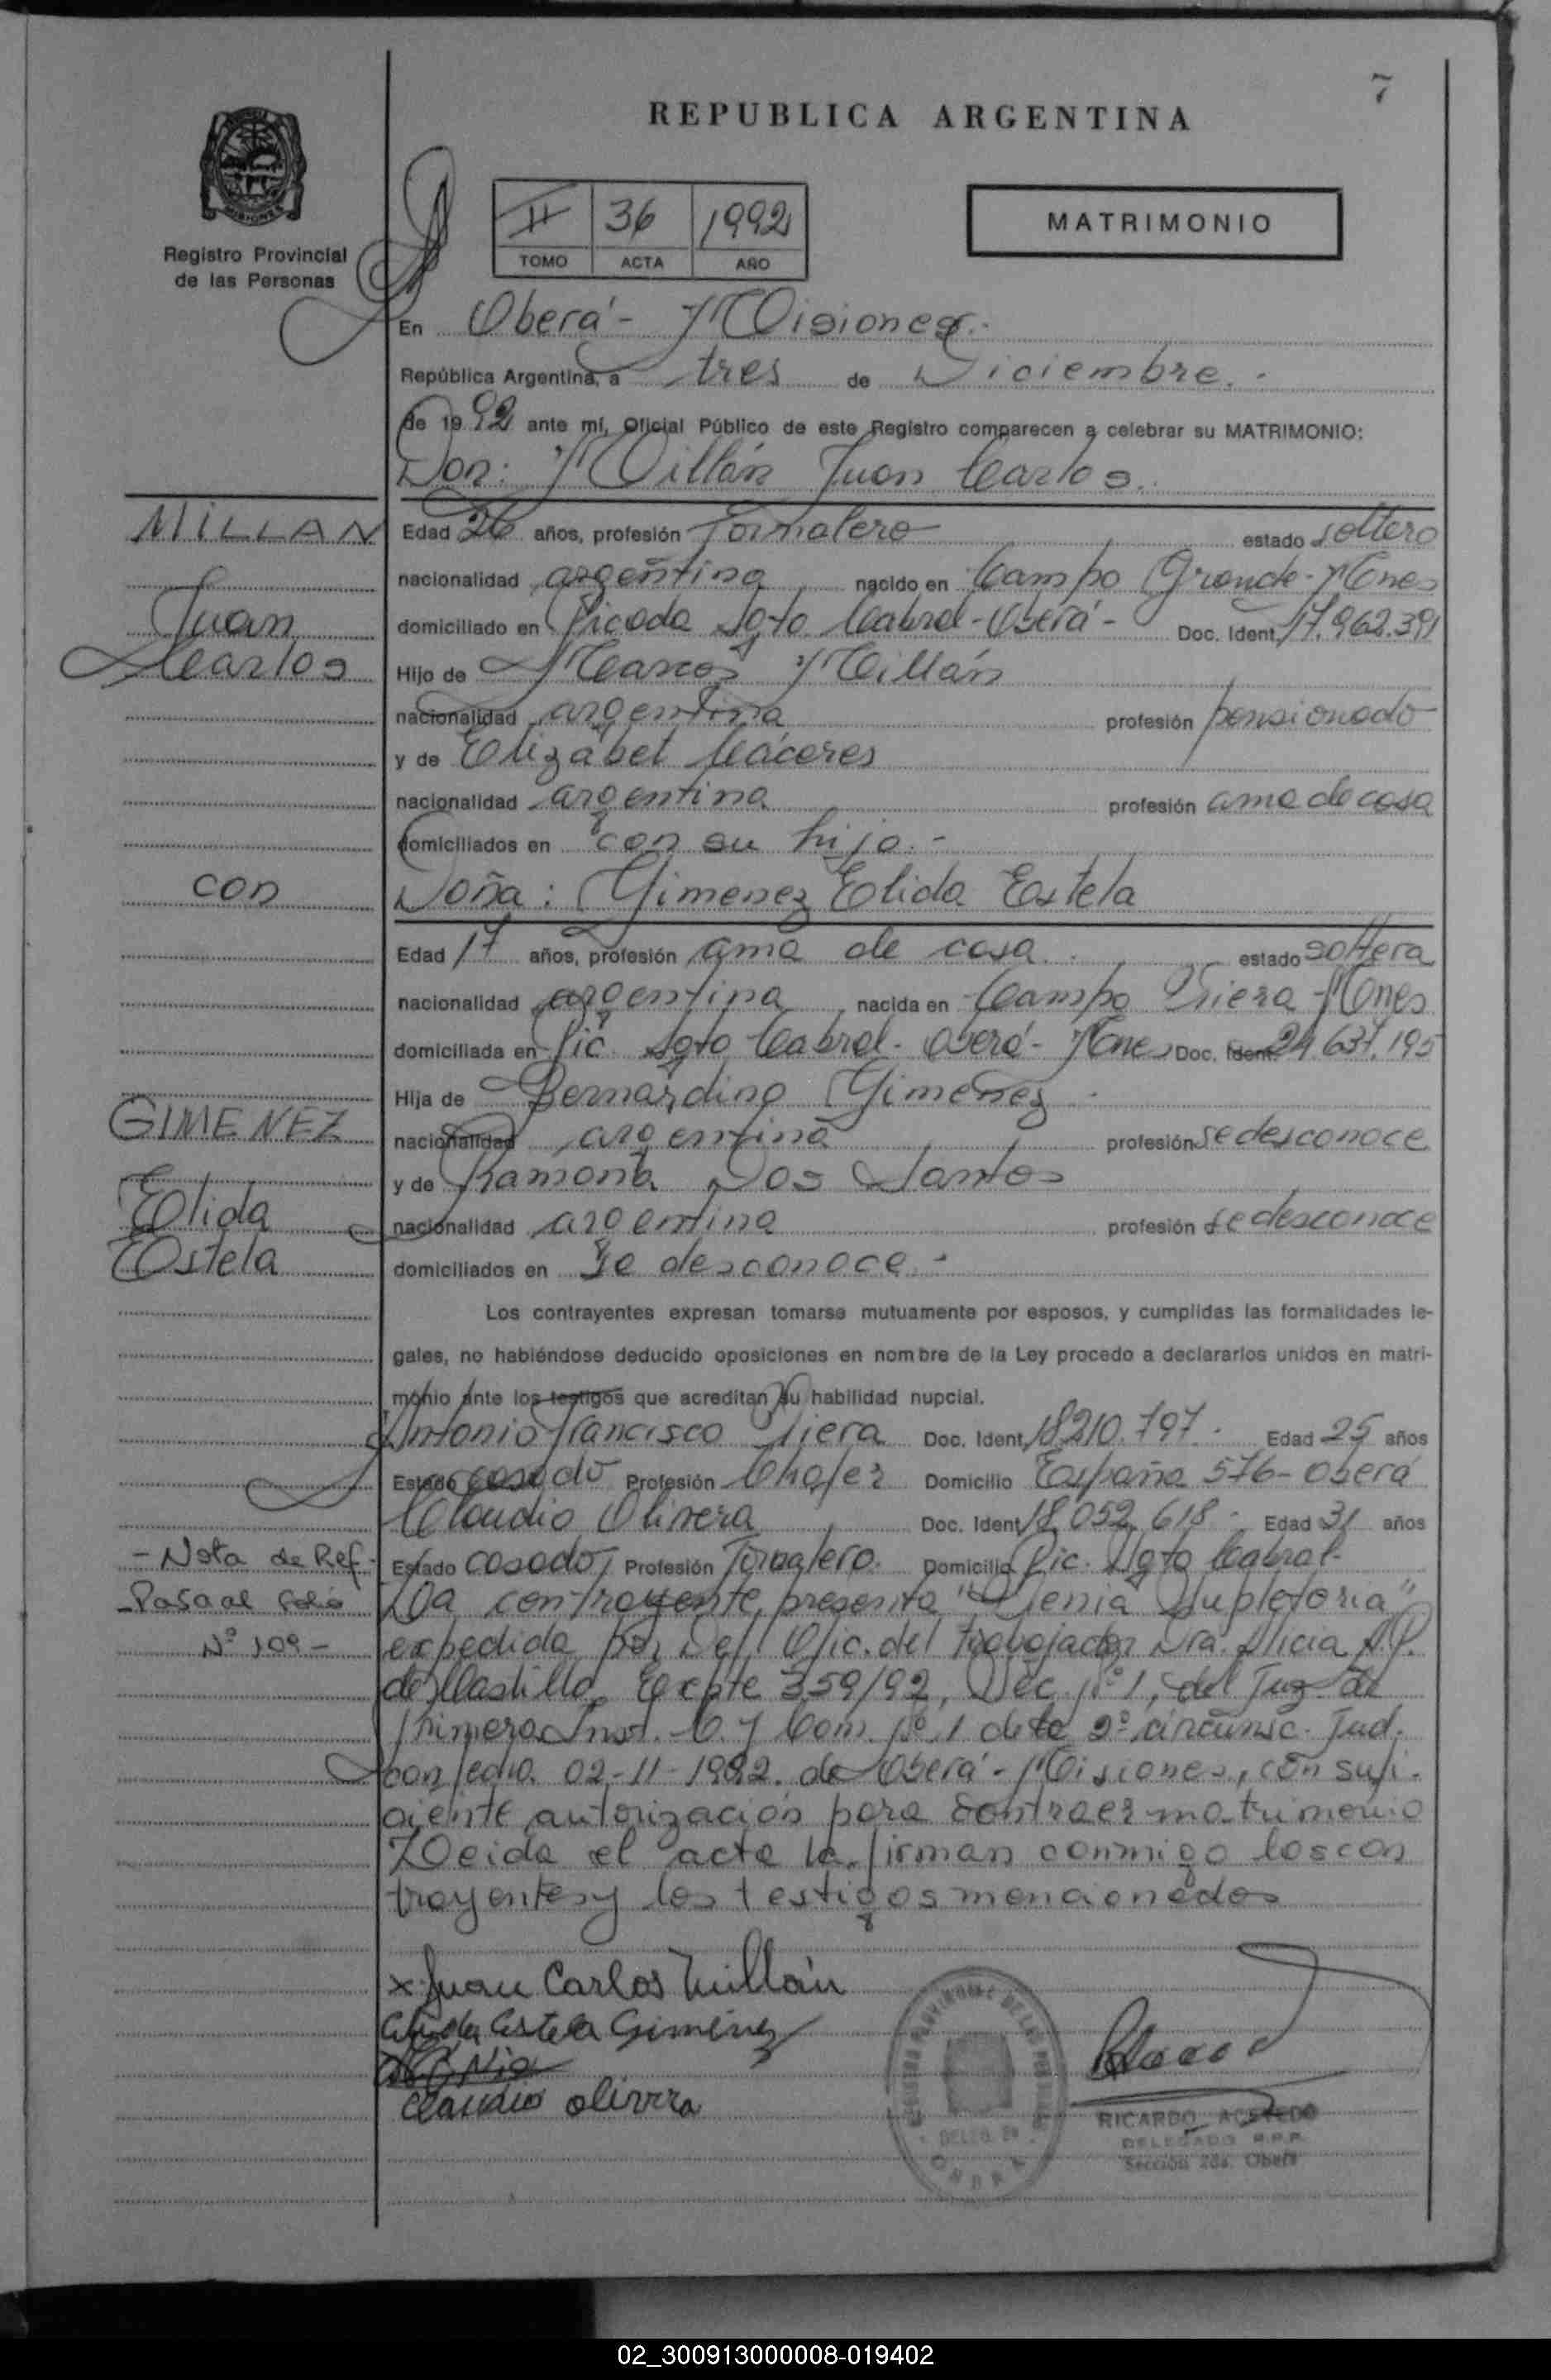 7
REPUBLICA ARGENTINA
MISIONES
Registro Provincial
de las Personas
II 36 1992
TOMO ACTA AÑO
MATRIMONIO
En Oberá - Misiones.-
República Argentina, a tres de Diciembre.-
de 1992 ante mí, Oficial Público de este Registro comparecen a celebrar su MATRIMONIO:
Don: Millán Juan Carlos.
MILLAN
Juan
Carlos
Edad 26 años, profesión Jornalero estado soltero
nacionalidad argentina nacido en Campo Grande - Mnes
domiciliado en Picada Sgto Cabral - Oberá - Doc. Ident. 17.962.391
Hijo de Marcos Millán
nacionalidad argentina profesión pensionado
y de Elizabet Cáceres
nacionalidad argentina profesión ama de casa
domiciliados en con su hijo.-
con
Doña: Gimenez Elida Estela
Edad 17 años, profesión ama de casa. estado soltera
nacionalidad argentina nacida en Campo Viera - Mnes
domiciliada en Pic. Sgto Cabral - Oberá - Mnes Doc. Ident. 24.637.195
Hija de Bernardino Gimenez -
GIMENEZ
Elida
Estela
nacionalidad argentina profesión se desconoce
y de Ramona Dos Santos
nacionalidad argentina profesión se desconoce
domiciliados en Se desconoce.-
Los contrayentes expresan tomarse mutuamente por esposos, y cumplidas las formalidades le-
gales, no habiéndose deducido oposiciones en nombre de la Ley procedo a declararlos unidos en matri-
monio ante los testigos que acreditan su habilidad nupcial.
Antonio Francisco Niera Doc. Ident. 18210.797.- Edad 25 años
Estado casado Profesión Chofer Domicilio España 576 - Oberá
Claudio Olivera Doc. Ident. 18.052.618 - Edad 31 años
Estado casado, Profesión Jornalero. Domicilio Pic. Sgto Cabral-
- Nota de Ref.
Pasa al folio
Nº 109 -
La contrayente, presenta "Venia Supletoria"
expedida por Def. Ofic. del trabajador Dra. Alicia A.P.
de Castillo, Expte 359/92, Sec. Nº 1, del Juz. de
Primera Inst. C. y Com. Nº 1 de la 2º circunsc. Jud.
con fecha 02-11-1992. de Oberá - Misiones, con sufi-
ciente autorización para contraer matrimonio
Leida el acta la firman conmigo los con
trayentes y los testigos mencionados
x Juan Carlos Millán
Elida Estela Gimenez
Claudio Olivera
RICARDO ACEVEDO
DELEGADO R.P.P.
Sección 2da. Oberá
02_300913000008-019402